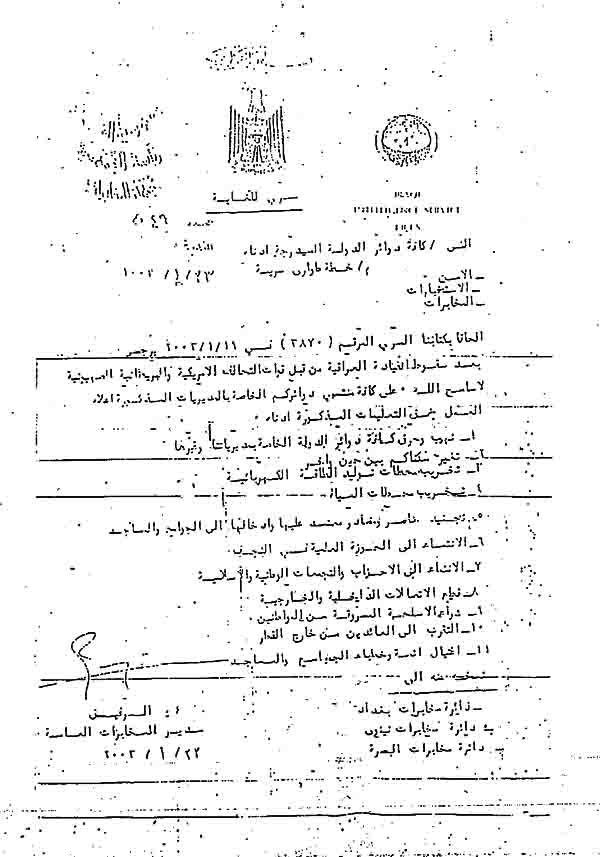 سري للغاية
IRAQI
INTELLIGENCE SERVICE
العدد
الى / كافة دوائر الدولة المدرجة ادناه
م / خطة طوارئ سريعة
٢٠٠٣ / ١ / ٢٣
ـ الامن
ـ الاستخبارات
ـ المخابرات
الحاقا بكتابنا السري المرقم ( ٣٨٧٠ ) في ٢٠٠٣/١/١١ يرجى
بعد سقوط القيادة العراقية من قبل قوات التحالف الامريكية والبريطانية الصهيونية
لاسامح الله على كافة منتسبي دوائركم الخاصة بالمديريات المذكورة اعلاه
العمل بموجب التعليمات المذكورة ادناه
١ـ نهب وحرق كافة دوائر الدولة الخاصة بمديرياتنا وغيرها
٢ـ تغيير سكناكم بين حين واخر
٣ـ تخريب محطات توليد الطاقة الكهربائية
٤ـ تخريب محطات المياه
٥ـ تجنيد عناصر ومصادر معتمد عليها وادخالها الى الجوامع والمساجد
٦ـ الانتماء الى الحوزة العلمية في النجف
٧ـ الانتماء الى الاحزاب والتجمعات الوطنية والاسلامية
٨ـ قطع الاتصالات الداخلية والخارجية
٩ـ شراء الاسلحة المسروقة من المواطنين
١٠ـ التقرب الى العائدين من خارج القطر
١١ـ اغتيال ائمة وخطباء الجوامع والمساجد
نسخة منه الى
ـ دائرة مخابرات بغداد
ـ دائرة مخابرات نينوى
ـ دائرة مخابرات البصرة
مدير المخابرات العامة
٢٠٠٣ / ١ / ٢٣